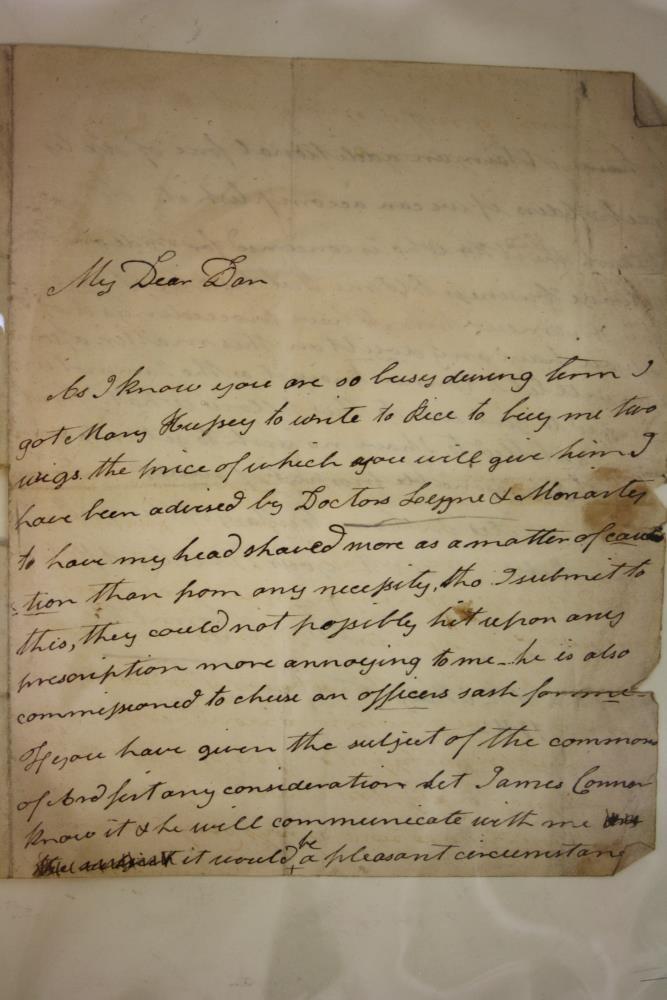 My Dear Dan
As I know you are so busy during term I
got Mary Hussey to write to Rice to buy me two
wigs. the price of which you will give him I
have been advised by Doctors Leyne & Moriarty
to have my head shaved more as a matter of cau
tion than from any necessity, tho I submit to
this, they could not possibly hit upon any
prescription more annoying to me - he is also
commissioned to chuse an officers sash for me -
If you have given the subject of the commons
of Ardfert any consideration let James Connor
know it & he will communicate with me
it would be a pleasant circumstanc